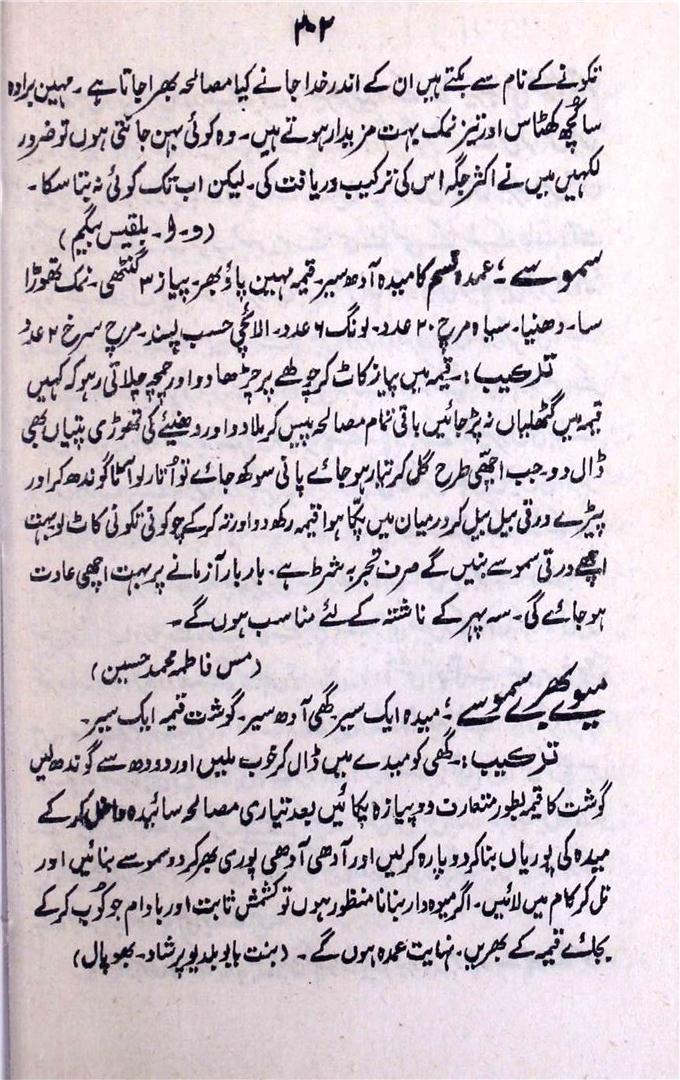 ۳۰۲
تکونے کے نام سے بکتے ہیں ان کے اندر خدا جانے کیا مصالحہ بھرا جاتا ہے ۔ مہین برادہ
سا کچھ کھٹاس اور تیز نمک بہت مزیدار ہوتے ہیں۔ وہ کوئی بہن جانتی ہوں تو ضرور
لکھیں میں نے اکثر جگہ اس کی ترکیب دریافت کی۔ لیکن اب تک کوئی نہ بتا سکا ۔
(و ۔ ا ۔ بلقیس بیگم)
سموسے :۔ عمدہ قسم کا میدہ آدھ سیر۔ قیمہ مہین پاؤ بھر۔ پیاز ۳ گنٹھی۔ نمک تھوڑا
سا۔ دھنیا۔ سیاہ مرچ ۲۰ عدد۔ لونگ ۶ عدد۔ الائچی حسب پسند۔ مرچ سرخ ۲ عدد
ترکیب :۔ قیمہ میں پیاز کاٹ کر چولھے پر چڑھا دو اور چمچہ چلاتی رہو کہ کہیں
قیمہ میں گٹھلیاں نہ پڑ جائیں باقی تمام مصالحہ پیس کر ملا دو اور دھنیئے کی تھوڑی پتیاں بھی
ڈال دو۔ جب اچھی طرح گل کر تیار ہو جائے پانی سوکھ جائے تو اُتار لو آٹا گوندھ کر اور
پیڑے ورقی بیل بیل کر درمیان میں پکا ہوا قیمہ رکھ دو اور تہ کر کے چوکونی تکونی کاٹ لو بہت
اچھے ورقی سموسے بنیں گے صرف تجربہ شرط ہے ۔ بار بار آزمانے پر بہت اچھی عادت
ہو جائے گی۔ سہ پہر کے ناشتہ کے لئے مناسب ہوں گے ۔
(مس فاطمہ محمد حسین)
میوے بھرے سموسے :۔ میدہ ایک سیر۔ گھی آدھ سیر۔ گوشت قیمہ ایک سیر۔
ترکیب :۔ گھی کو میدے میں ڈال کر خوب ملیں اور دودھ سے گوندھ لیں
گوشت کا قیمہ بطور متعارف دو پیازہ پکائیں بعد تیاری مصالحہ سائیدہ داخل کر کے
میدہ کی پوریاں بنا کر دو پارہ کر لیں اور آدھی آدھی پوری بھر کر دو سموسے بنائیں اور
تل کر کام میں لائیں۔ اگر میوہ دار بنانا منظور ہوں تو کشمش ثابت اور بادام جو کوب کر کے
بجائے قیمہ کے بھریں۔ نہایت عمدہ ہوں گے ۔ (بنت بابو بلدیو پرشاد۔ بھوپال)